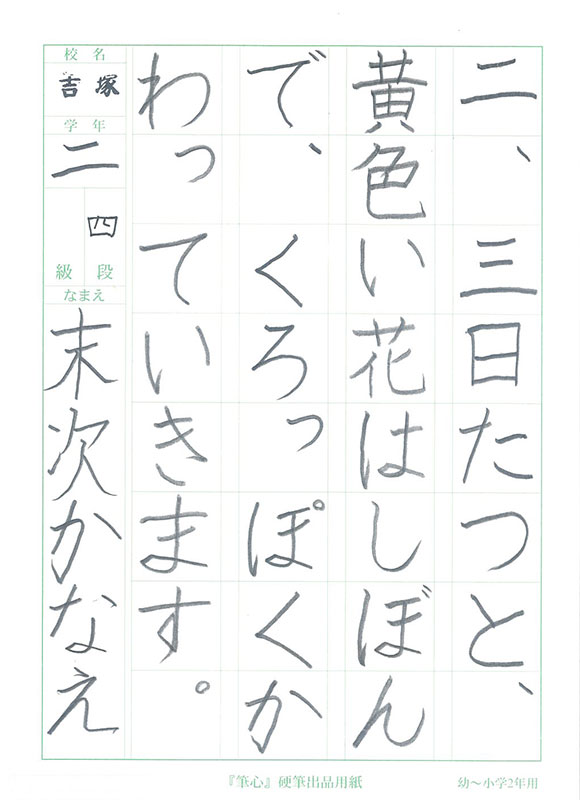 二、三日たつと、
黄色い花はしぼん
で、くろっぽくか
わっていきます。
校名
吉塚
学年
二
四
段級
なまえ
末次かなえ
『筆心』硬筆出品用紙
幼〜小学2年用